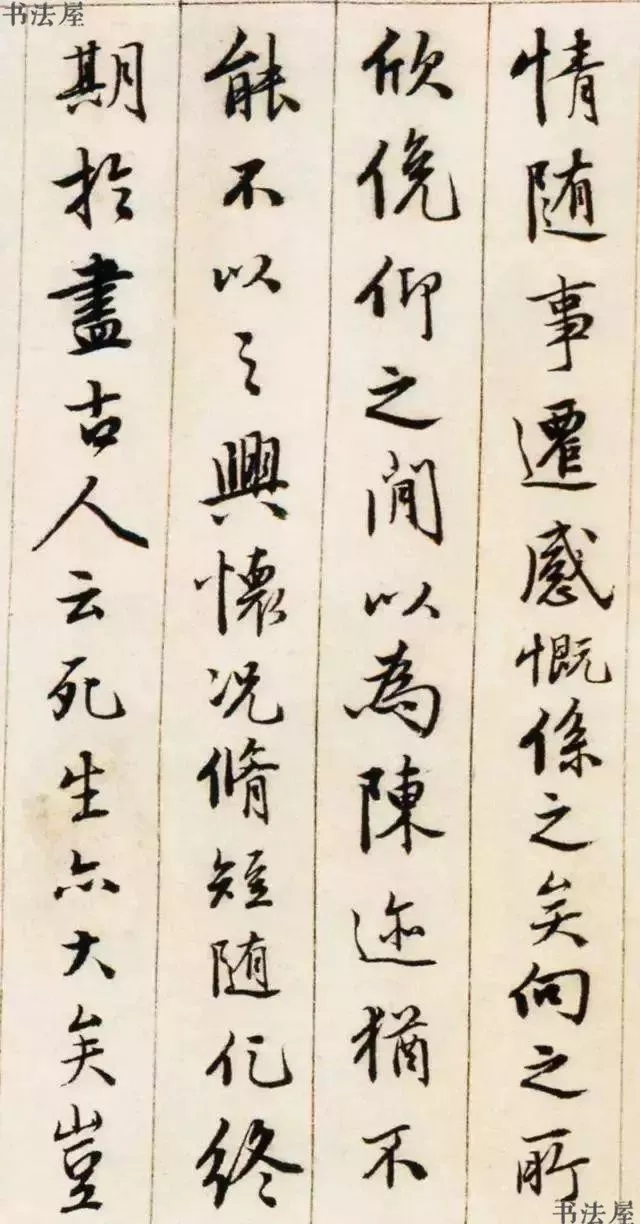 书法屋
情随事遷感慨係之矣向之所
欣俛仰之間以為陳迹猶不
能不以之興懷况脩短随化終
期於盡古人云死生亦大矣豈
书法屋